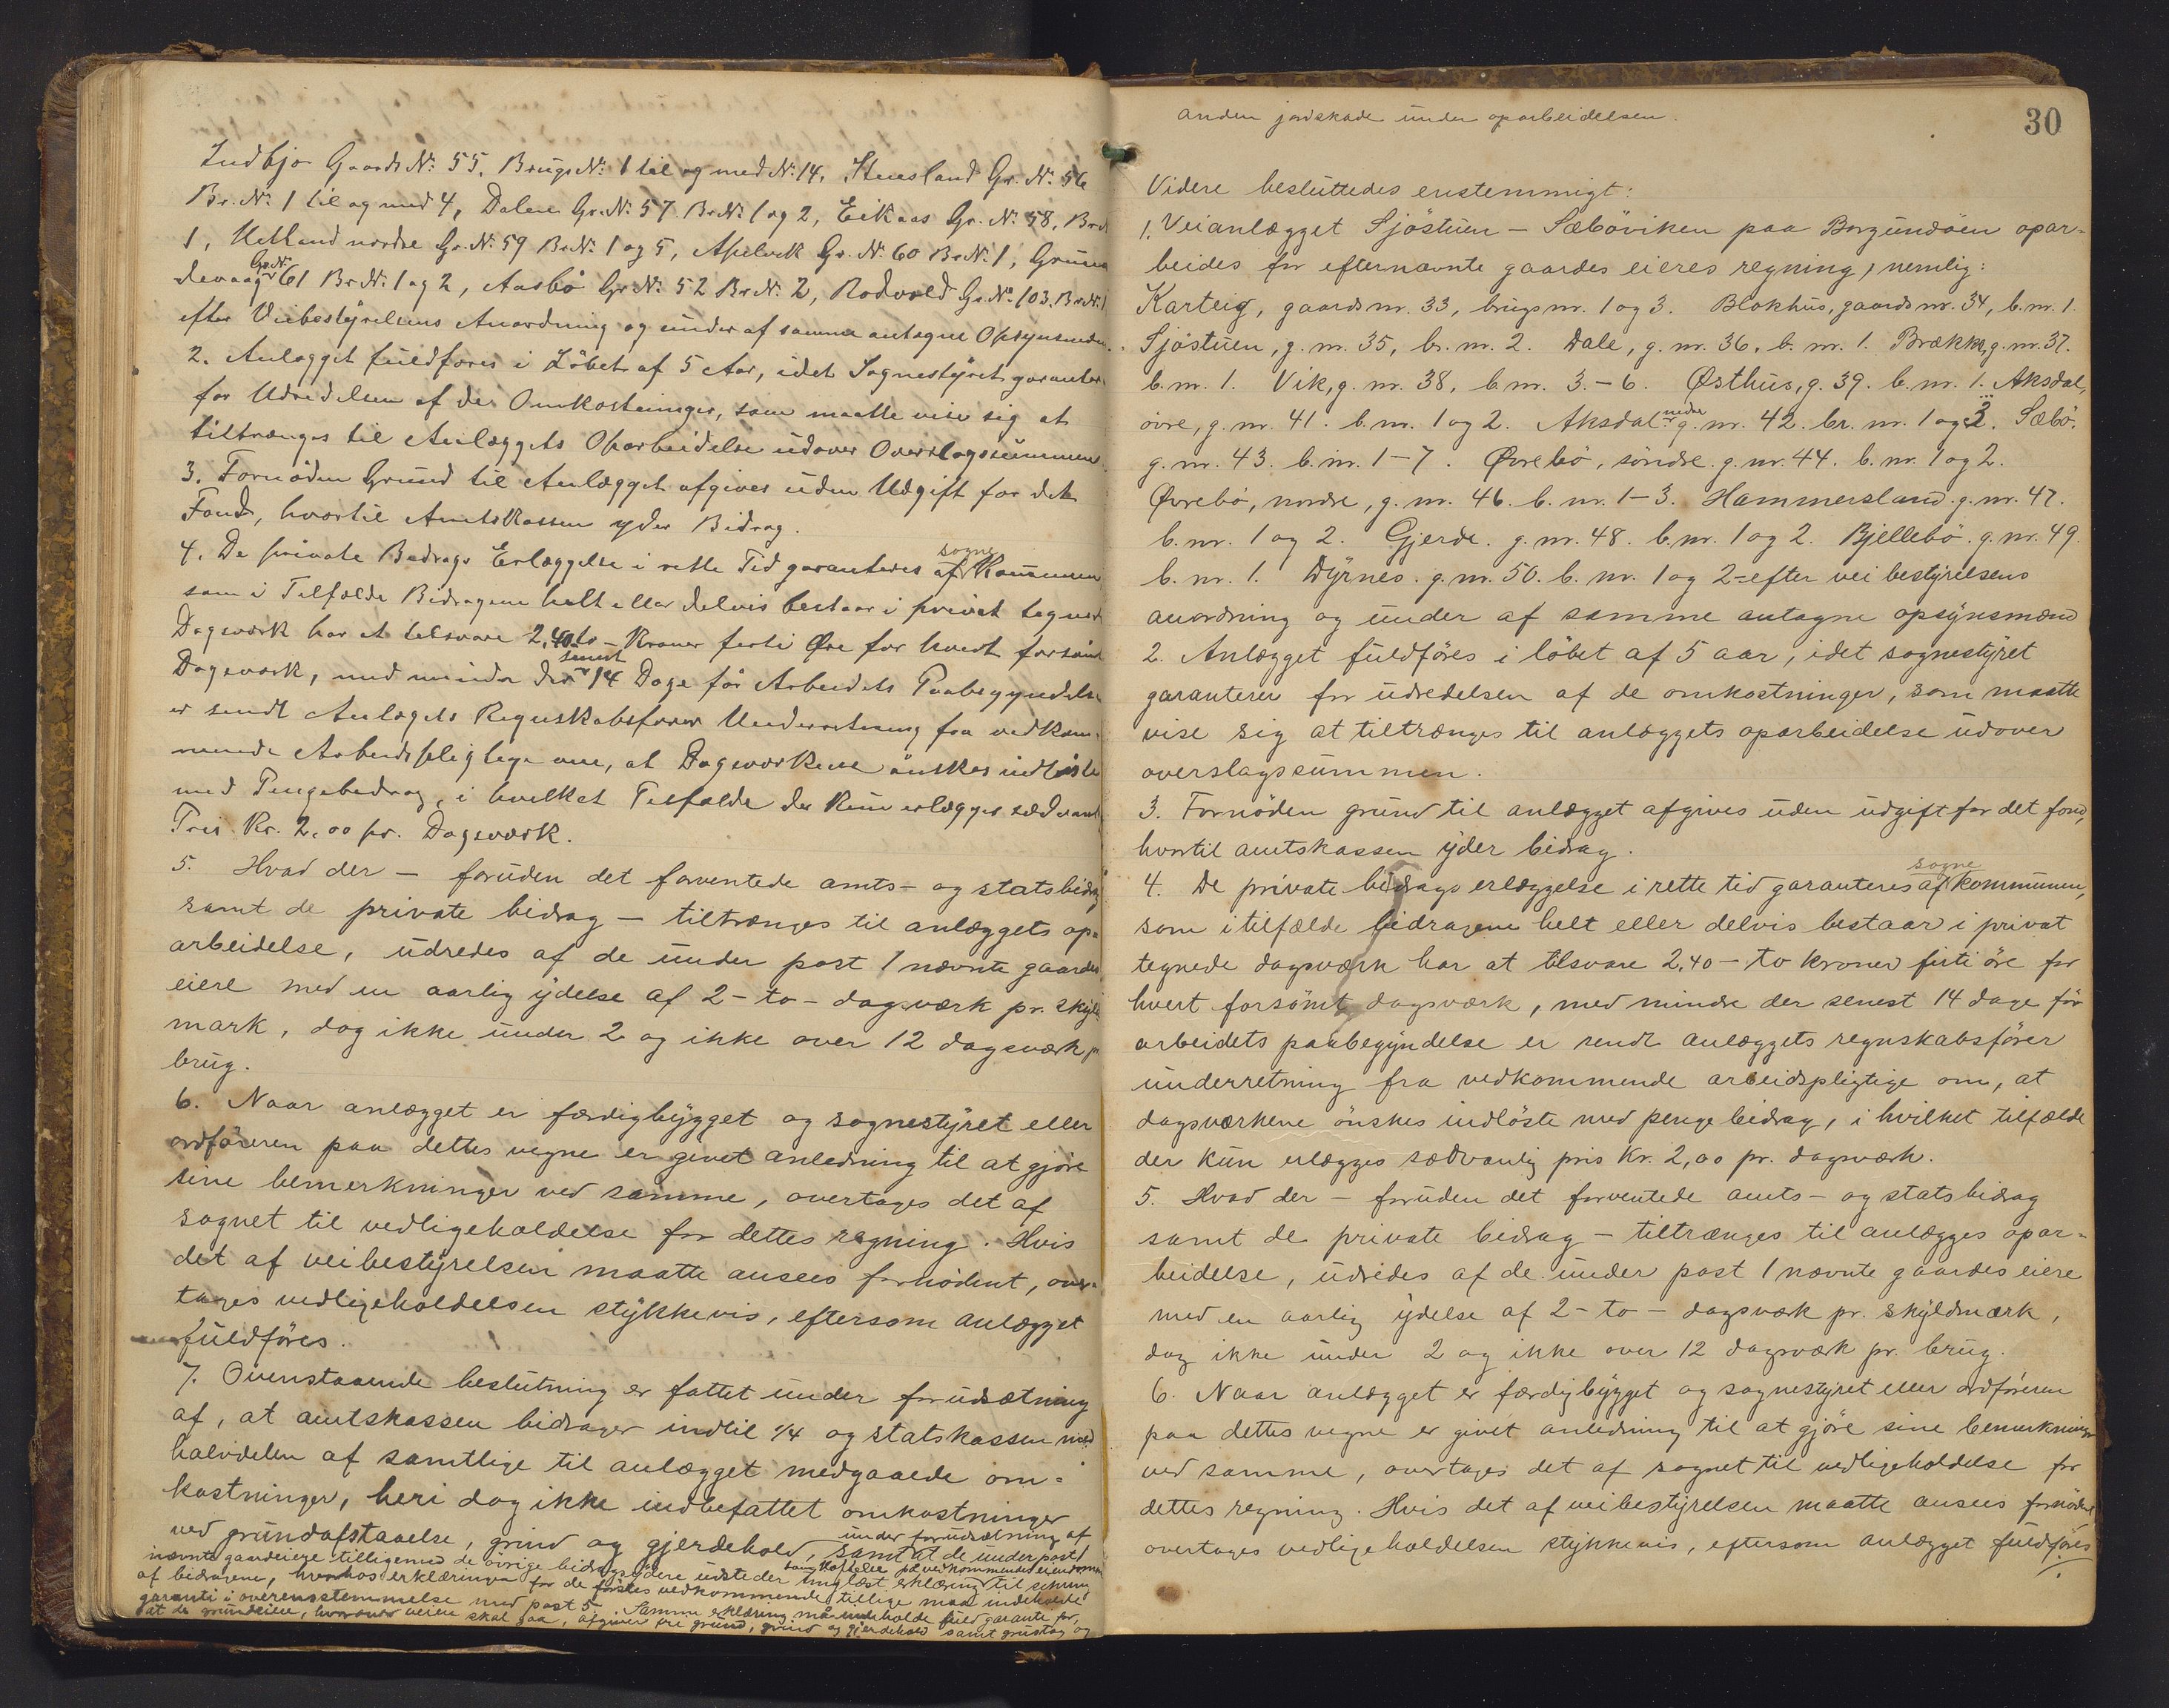 Indbjo Gaards No 55, Brugs No 1 til og med No 14, Steensland Gr. No 56
Br. No 1 til og med 4, Dalen Gr. No 57 Br No 1 og 2, Eikaas Gr. No 58, Br No
1, Hetland nordre Gr. No 59 Br No 1 og 5, Apelvik Gr. No 60 Br No 1, Grunna
devaag Gr. No 61 Br No 1 og 2, Aasbö Gr No 52 Br No 2, Rodvold Gr No 103, Br No 1
efter Veibestyrelsens Anordning og under af samme antagne Opsynsmænd.
2. Anlægget fuldføres i Löbet af 5 Aar, idet Sognestyret garanterer
for Udredelsen af de Omkostninger, som maatte vise sig at
tiltrænges til Anlæggets Oparbeidelse udover Overslagssummen.
3. Fornöden Grund til Anlægget afgives uden Udgift for det
Fond, hvortil Amtskassen yder Bidrag.
4. De private Bidrags Erlæggelse i rette Tid garanteres af sogne Kommunen
som i Tilfælde Bidragene helt eller delvis bestaar i privat tegnede
Dagsværk har at tilsvare 2,40 to Kroner firti Øre for hvert forsömt
Dagsværk, med mindre der senest 14 Dage för Arbeidets Paabegyndelse
er sendt Anlægets Regnskabsförer Underretning fra vedkom-
mende Arbeidspligtige om, at Dagsværkene önskes indlöste
med Pengebidrag, i hvilket Tilfælde der kun erlægges sædvanl.
Pris Kr. 2,00 pr. Dagsværk.
5. Hvad der – foruden det forventede amts- og statsbidrag
samt de private bidrag – tiltrænges til anlæggets op-
arbeidelse, udredes af de under post 1 nævnte gaardes
eiere med en aarlig ydelse af 2 - to - dagsværk pr. skyld-
mark, dog ikke under 2 og ikke over 12 dagsværk pr
brug.
6. Naar anlægget er færdigbygget og sognestyret eller
ordföreren paa dettes vegne er givet anledning til at gjöre
sine bemerkninger ved samme, overtages det af
sognet til vedligeholdelse for dettes regning. Hvis
det af veibestyrelsen maatte ansees fornödent, over-
tages vedligeholdelsen stykkevis, eftersom anlægget
fuldföres.
7. Ovenstaaende beslutning er fattet under forudsætning
af, at amtskassen bidrager indtil 1/4 og statskassen med
halvdelen af samtlige til anlægget medgaaede om-
kostninger, heri dog ikke indbefattet omkostninger
ved grundafstaaelse, grind og gjerdehold, samt under forudsætning af at de under post 1
nævnte gaardeiere tilligemed de övrige bidragsydere udsteder tinglæst erklæring til sikring
af bidragene, hvorhos erklæringen for de förstes vedkommende tillige maa indeholde
garanti i overensstemmelse med post 5. Samme erklæring må indeholde fuld garanti for,
at de grundeiere, hvorover veien skal gaa, afgiver fri grund, grind og gjerdehold samt grustag og
anden jordskade under oparbeidelsen.
30
Videre besluttedes enstemmigt:
1. Veianlægget Sjöstuen – Sæböviken paa Borgundöen opar-
beides for efternævnte gaardes eieres regning, nemlig:
Karteig, gaards nr. 33, brugs nr. 1 og 3. Blokhus, gaards nr. 34, b. nr. 1.
Sjöstuen, g. nr. 35, br. nr. 2. Dale, g. nr. 36, b. nr. 1. Brække, g. nr. 37.
b. nr. 1. Vik, g. nr. 38, b nr. 3.–6. Østhus, g. 39. b. nr. 1. Aksdal,
övre, g. nr. 41. b. nr. 1 og 2. Aksdal nedre g. nr. 42. br. nr. 1 og 3. Sæbö.
g. nr. 43. b. nr. 1–7. Øvrebö, söndre. g. nr. 44. b. nr. 1 og 2.
Øvrebö, nordre, g. nr. 46. b. nr. 1–3. Hammersland. g. nr. 47.
b. nr. 1 og 2. Gjerde. g. nr. 48. b. nr. 1 og 2. Bjellebö. g. nr. 49.
b. nr. 1. Dyrnes. g. nr. 50. b. nr. 1 og 2 – efter veibestyrelsens
anordning og under af samme antagne opsynsmænd
2. Anlægget fuldföres i löbet af 5 aar, idet sognestyret
garanterer for udredelsen af de omkostninger, som maatte
vise sig at tiltrænges til anlæggets oparbeidelse udover
overslagssummen.
3. Fornöden grund til anlægget afgives uden udgift for det fond,
hvortil amtskassen yder bidrag.
4. De private bidrags erlæggelse i rette tid garanteres af sogne kommunen,
som i tilfælde bidragene helt eller delvis bestaar i privat
tegnede dagsværk har at tilsvare 2,40 – to kroner firti öre for
hvert forsömt dagsværk, med mindre der senest 14 dage för
arbeidets paabegyndelse er sendt anlæggets regnskabsförer
underretning fra vedkommende arbeidspligtige om, at
dagsværkene önskes indlöste med pengebidrag, i hvilket tilfælde
der kun erlægges sædvanlig pris Kr. 2,00 pr. dagsværk.
5. Hvad der – foruden det forventede amts- og statsbidrag
samt de private bidrag – tiltrænges til anlægges opar-
beidelse, udredes af de under post 1 nævnte gaardes eiere
med en aarlig ydelse af 2 - to - dagsværk pr. skyldmark,
dog ikke under 2 og ikke over 12 dagsværk pr. brug.
6. Naar anlægget er færdigbygget og sognestyret eller ordföreren
paa dettes vegne er givet anledning til at gjöre sine bemerkninger
ved samme, overtages det af sognet til vedligeholdelse for
dettes regning. Hvis det af veibestyrelsen maatte ansees fornödent
overtages vedligeholdelsen stykkevis, eftersom anlægget fuldföres